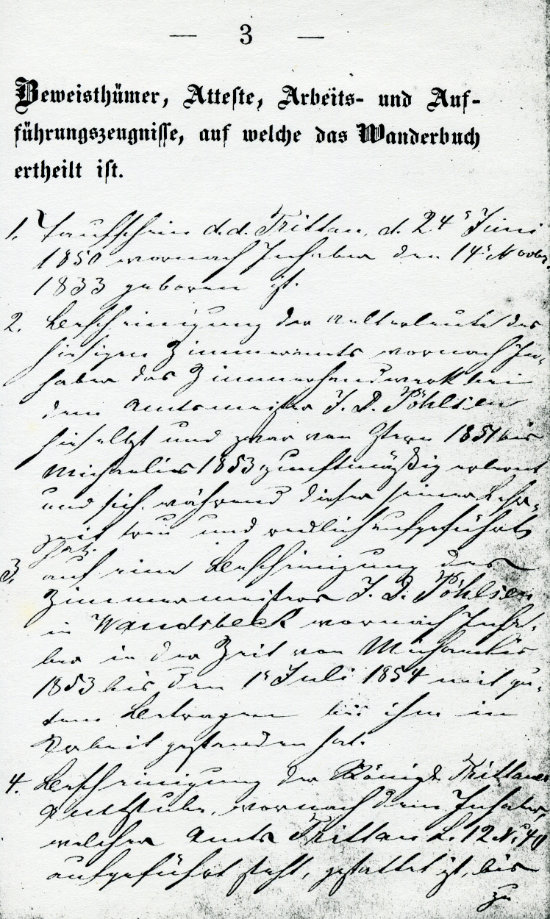 — 3 —
Beweisthümer, Atteste, Arbeits- und Auf-
führungszeugnisse, auf welche das Wanderbuch
ertheilt ist.
1. Taufschein d.d. Trittau, d. 24t Juni
1850 wornach Inhaber den 14t Novbr.
1833 geboren ist.
2. Bescheinigung der Aelterleute des
hiesigen Zimmeramts wornach In-
haber das Zimmerhandwerk bei
dem Amtsmeister J. D. Pöhlsen
hieselbst und zwar von Ostern 1851 bis
Michaelis 1853 zunftmäßig erlernt
und sich während dieser seiner Lehr-
zeit treu und redlich aufgeführt
hat.
3. auf eine Bescheinigung des
Zimmermeisters J. D. Pöhlsen
in Wandsbeck wornach Inha-
ber in der Zeit von Michaelis
1853 bis den 1t Juli 1854 mit gu-
tem Betragen bei ihm in
Arbeit gestanden hat.
4. Bescheinigung der Königl. Trittauer
Amtstube, wornach dem Inhaber,
welcher Amts Trittau L. 12 No 40
aufgeführt steht, gestattet ist, bis